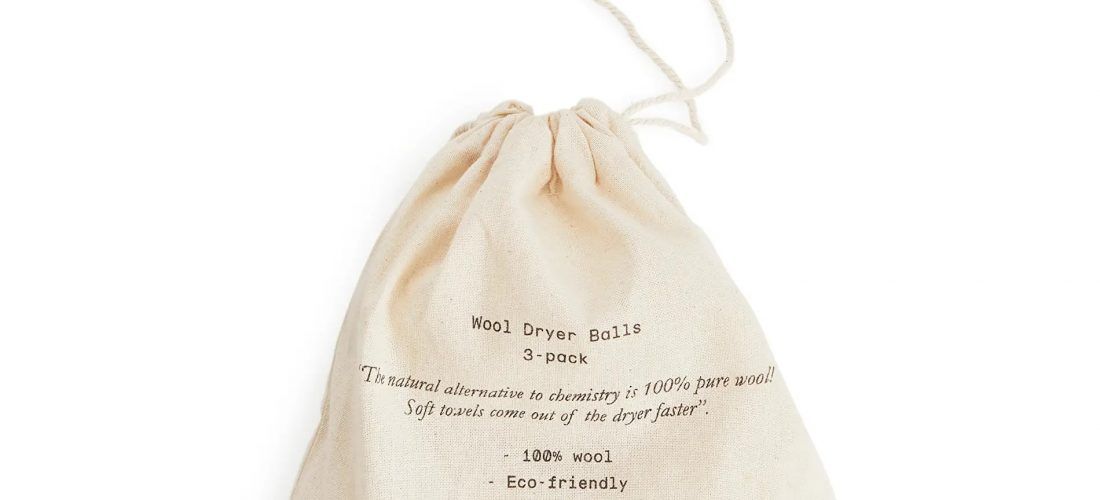 Wool Dryer Balls
3-pack
“The natural alternative to chemistry is 100% pure wool!
Soft towels come out of the dryer faster”.
- 100% wool
- Eco-friendly